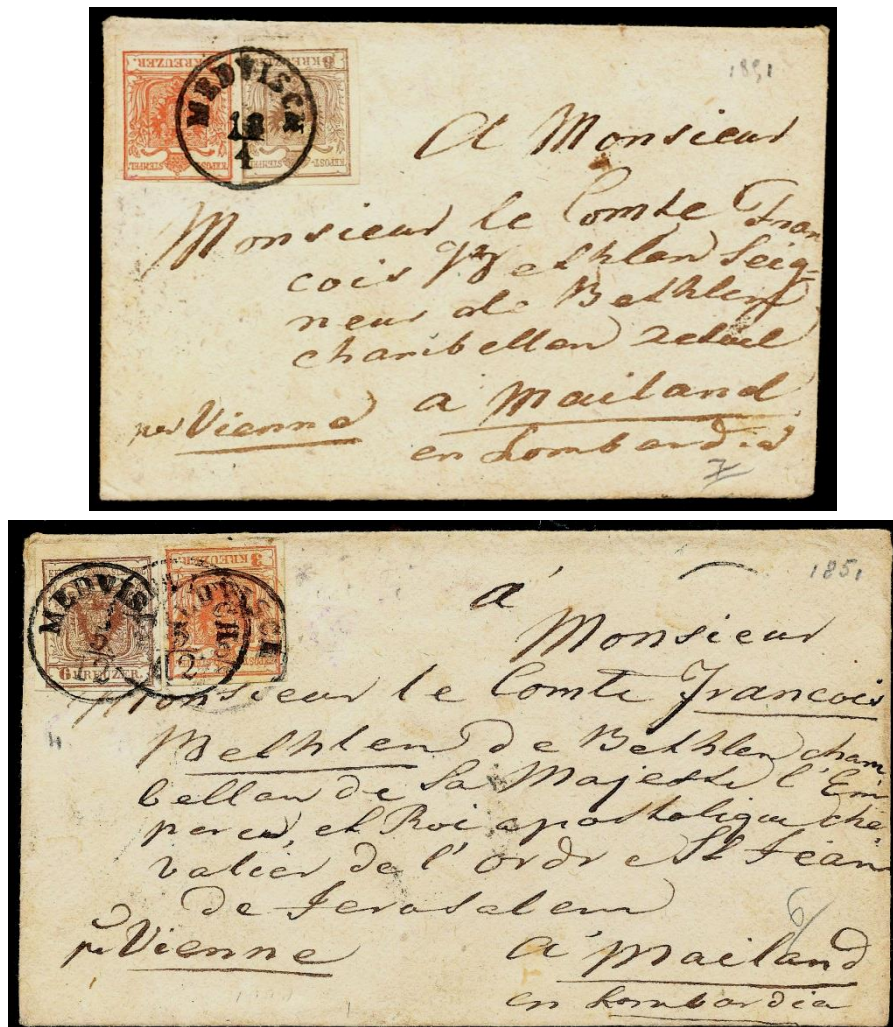 KREUZER.
6 KREUZER.
KKPOST-STEMPEL
KKPOST-STEMPEL
MEDVISCH
4
1851
A Monsieur
Monsieur le Comte Fran
cois Bethlen Seig-
neur de Bethlen
chambellan
à Mailand
per Vienne
en Lombardia
MEDVISCH
6 KREUZER.
3 KREUZER
MEDVISCH
1851
à
Monsieur
Monsieur le Comte Francois
Bethlen de Bethlen cham
bellan de Sa Majesté l'Em
pereur, et Roi apostolique che-
valier de l'ordre St Jean
de Jerusalem
per Vienne
à Mailand
en Lombardia
6